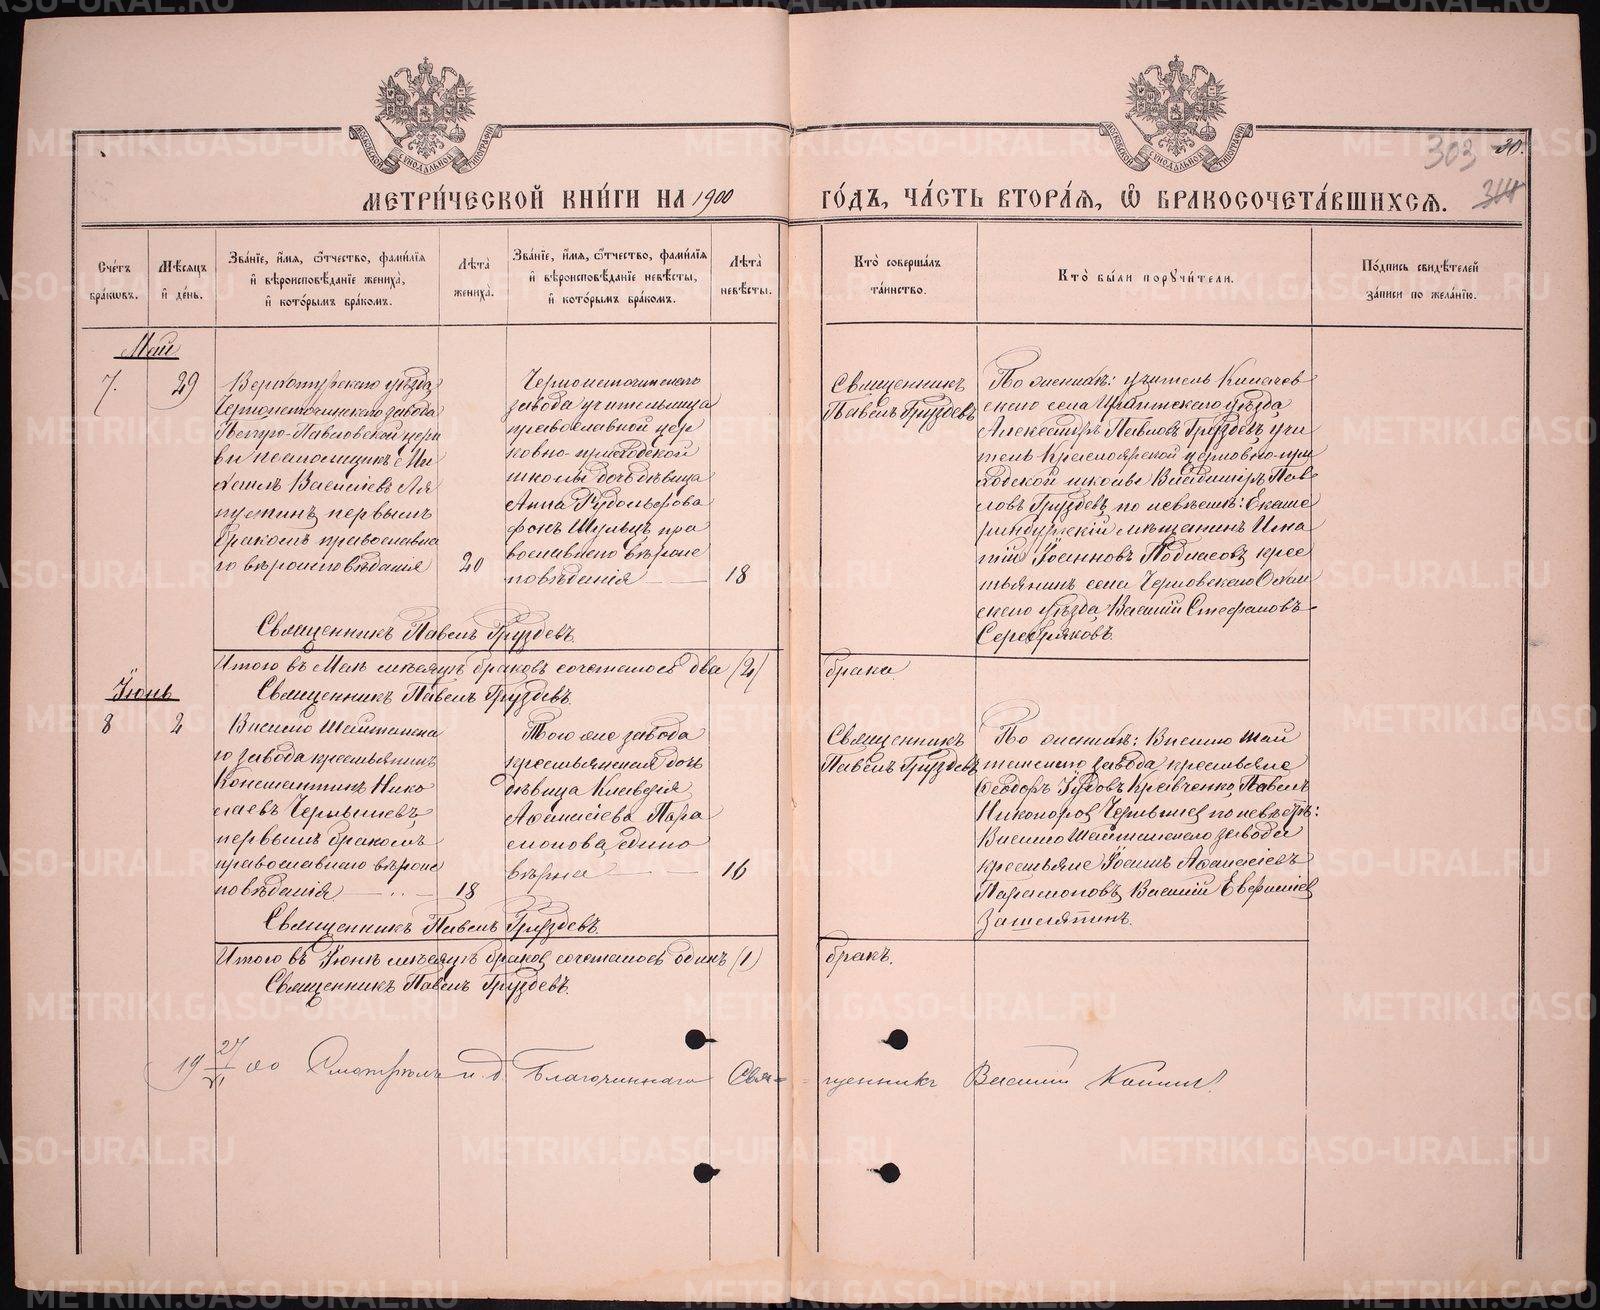 МЕТРИ́ЧЕСКОЙ КНИ́ГИ НА 1900 ГО́ДЪ, ЧА́СТЬ ВТОРА́Я, Ѡ БРАКОСОЧЕТА́ВШИХСѦ.
303
30.
314
Сче́тъ бра́кωвъ.
Мѣ́сяцъ й де́нь.
Зва́нїе, и҆́мѧ, ѻ҆́тчество, фами́лїѧ й вѣроисповѣ́данїе жениха̀, й кото́рымъ бра́комъ.
Лѣта̀ жениха̀.
Зва́нїе, и҆́мѧ, ѻ҆́тчество, фами́лїѧ й вѣроисповѣ́данїе невѣ́сты, й кото́рымъ бра́комъ.
Лѣта̀ невѣ́сты.
Кто̀ соверша́лъ та́инство.
Кто̀ бы́ли порꙋчи́тели.
По́дпись свидѣ́телей за́писи по жела́нїю.
Май
7.
29
Верхотурскаго уѣзда
Черноисточинскаго завода
Петро-Павловской церк
ви псаломщикъ Ми
хаилъ Васильевъ Ля
пустинъ, первымъ
бракомъ православна
го вѣроисповѣданія
20
Черноисточинскаго
завода учительница
православной цер
ковно-приходской
школы дочь дѣвица
Анна Рудольфова
фонъ Шульцъ, пра
вославнаго вѣроис
повѣданія
18
Священникъ
Павелъ Груздевъ
По женихѣ: учитель
скаго села уѣзда
Александръ Павловъ Груздевъ, учи
тель Красноярской церковно-при
ходской школы Владиміръ Пав
ловъ Груздевъ, по невѣстѣ: Екате
ринбургскій мѣщанинъ Игна
тій Іоанновъ крес
тьянинъ села Черновскаго Охан
скаго уѣзда, Василій Стефановъ
Серебряковъ.
Священникъ Павелъ Груздевъ
Итого въ Маѣ мѣсяцѣ браковъ сочеталось два (2) брака
Священникъ Павелъ Груздевъ.
Іюнь
8
2
Висимо Шайтанска
го завода крестьянинъ
Константинъ Нико
лаевъ Чернышевъ
первымъ бракомъ
православнаго вѣроис
повѣданія
18
Того же завода
крестьянская дочь
дѣвица Клавдія
Аѳанасіева Пара
монова, едино
вѣрка
16
Священникъ
Павелъ Груздевъ
По женихѣ: Висимо Шай
танскаго завода крестьяне
Ѳеодоръ Кравченко, Павелъ
Никоноровъ Чернышевъ, по невѣстѣ:
Висимо Шайтанскаго завода
крестьяне Іоаннъ Аѳанасіевъ
Парамоновъ, Василій
Замятинъ.
Священникъ Павелъ Груздевъ.
Итого въ Іюнѣ мѣсяцѣ браковъ сочеталось одинъ (1) бракъ.
Священникъ Павелъ Груздевъ.
19 27/VI 00 Смотрѣлъ и. д. Благочиннаго Свя= =щенникъ Василій
METRIKI.GASO-URAL.RU